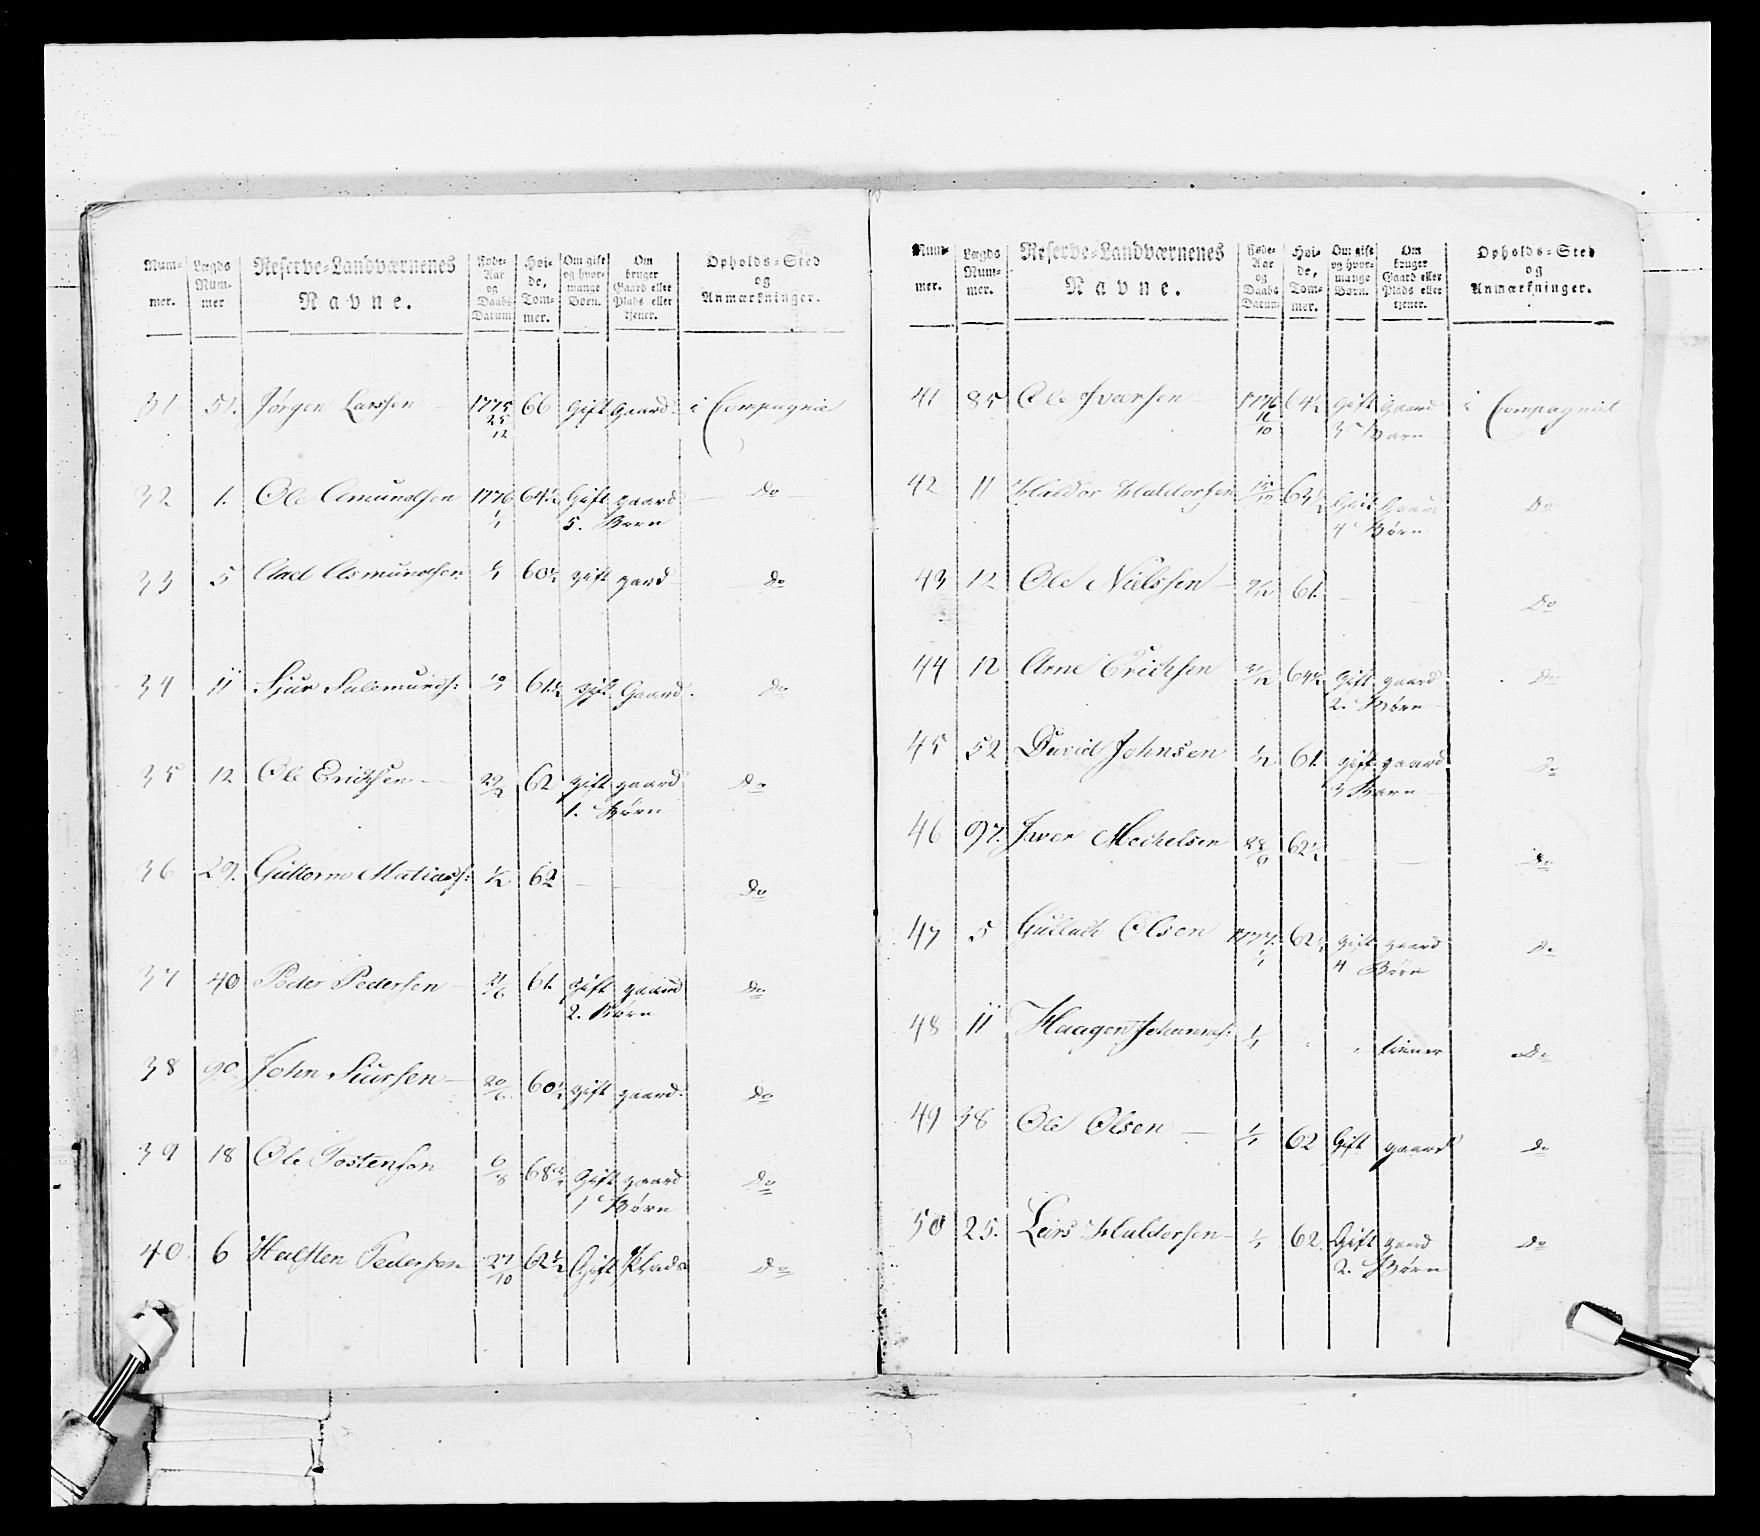 Num-
mer.
Lægds
Num-
mer
Reserve-Landværnenes
Navne.
Føde-
Aar
og
Daabs
Datum
Høi-
de,
Tom-
mer.
Om gift
og hvor-
mange
Børn.
Om
bruger
Gaard eller
Plads eller
tjener.
Opholds-Sted
og
Anmærkninger.
31 51. Jørgen Larssen 1775 66 Gift gaard. i Compagnie
25/12
32 1. Ole Amundsen 1776 64½ Gift gaard Do
1/1 5. Børn
33 5 Aad Asmundsen 1/1 60½ gift gard Do
34 11 Sjur Salemunds: 61½ gift Gaard. Do
35 12 Ole Erichsen 62 gift gaard Do
1. Børn
36 29. Guttorm Matias: 62 — — Do
37 40 Peder Pedersen 61. gift gaard Do
2. Børn
38 90 John Siursen 20/6 60½ gift gaard. Do
39 18 Ole Tostensen 6/8 68½ Gift gaard Do
1 Børn
40. 6 Halsten Pedersen 27/10 62½ Gift Plads Do
Num-
mer.
Lægds
Num-
mer.
Reserve-Landværnenes
Navne.
Føde-
Aar
og
Daabs
Datum
Høi-
de,
Tom-
mer.
Om gift
og hvor-
mange
Børn.
Om
bruger
Gaard eller
Plads eller
tjener.
Opholds-Sted
og
Anmærkninger.
41 85 Ole Iversen 1776 64½ Gift gaard i Compagniet
16/10 3 Barn
42 11 Haldor Haldorsen 63½ Gift Gaard Do
4 Børn
43 12 Ole Nielssen 61. — — Do
44 12 Arne Erichsen 64½ Gift gaard Do
2. Børn
45 52 David Johnsen 61. gift gaard Do
3 Barn
46 97. Iver Mechelsen 62½ — — Do
47 5 Gullach Olsen 1777. 62½ gift gaard Do
1/1 4 Børn
48 11 Haagen Johannes: 1/1 tiener Do
49 38 Ole Olsen 1/1 62 Gift gaard Do
50 25. Lars Haldorsen 1/1 62. Gift gaard Do
2. Børn